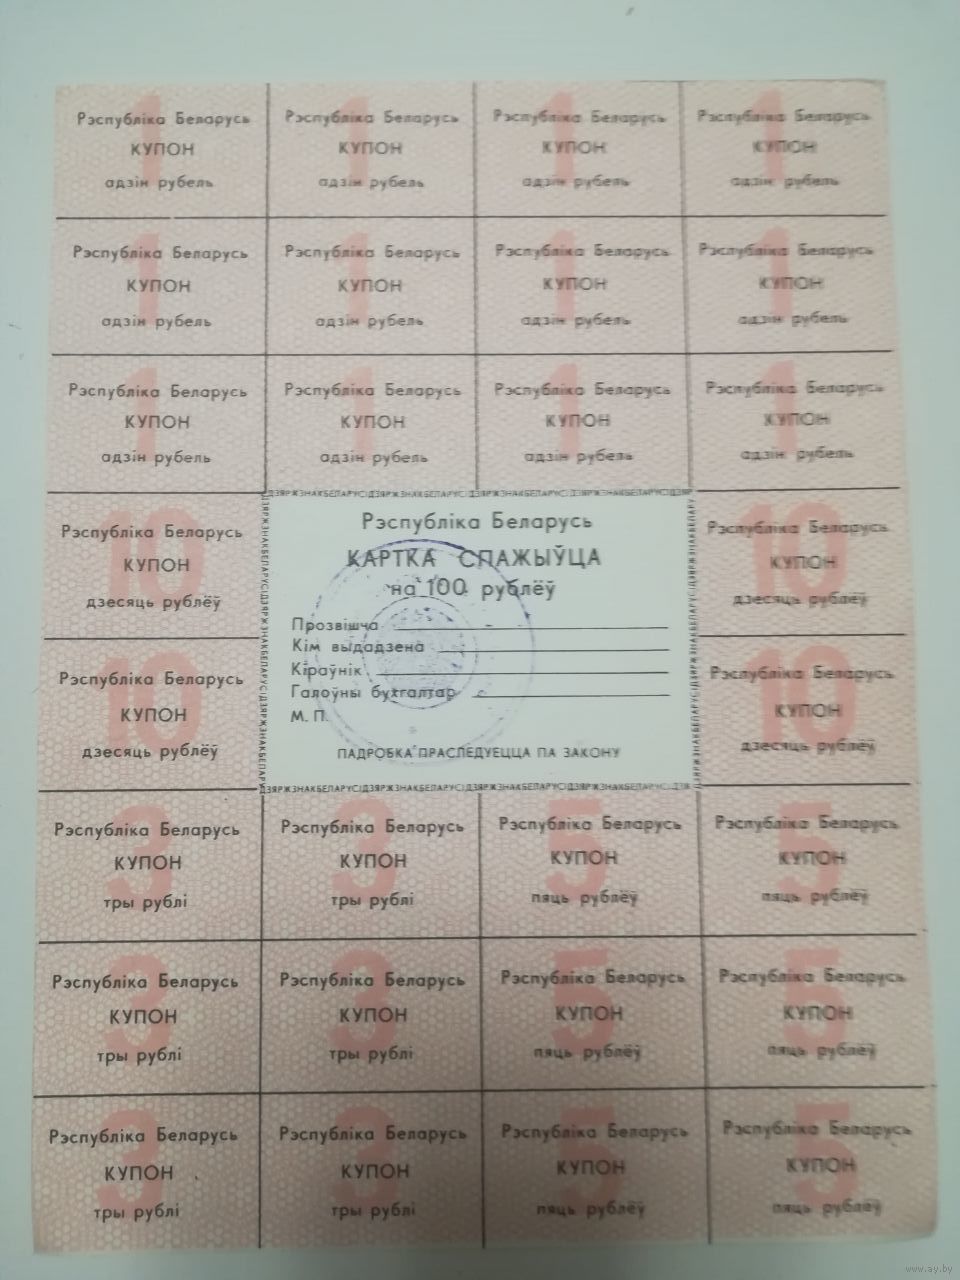 Рэспубліка Беларусь Рэспубліка Беларусь Рэспубліка Беларусь Рэспубліка Беларусь
1 КУПОН 1 КУПОН 1 КУПОН 1 КУПОН
адзін рубель адзін рубель адзін рубель адзін рубель
Рэспубліка Беларусь Рэспубліка Беларусь Рэспубліка Беларусь Рэспубліка Беларусь
1 КУПОН 1 КУПОН 1 КУПОН 1 КУПОН
адзін рубель адзін рубель адзін рубель адзін рубель
Рэспубліка Беларусь Рэспубліка Беларусь Рэспубліка Беларусь Рэспубліка Беларусь
1 КУПОН 1 КУПОН 1 КУПОН 1 КУПОН
адзін рубель адзін рубель адзін рубель адзін рубель
Рэспубліка Беларусь
10 КУПОН
дзесяць рублёў
Рэспубліка Беларусь
10 КУПОН
дзесяць рублёў
ДЗЯРЖЗНАКБЕЛАРУСІДЗЯРЖЗНАКБЕЛАРУСІДЗЯРЖЗНАКБЕЛАРУСІДЗЯРЖЗНАКБЕЛАРУСІДЗЯР
Рэспубліка Беларусь
КАРТКА СПАЖЫЎЦА
на 100 рублёў
Прозвішча
Кім выдадзена
Кіраўнік
Галоўны бухгалтар
М. П.
ПАДРОБКА ПРАСЛЕДУЕЦЦА ПА ЗАКОНУ
ДЗЯРЖЗНАКБЕЛАРУСІДЗЯРЖЗНАКБЕЛАРУСІДЗЯРЖЗНАКБЕЛАРУСІДЗЯРЖЗНАКБЕЛАРУСІДЗЯ
Рэспубліка Беларусь
10 КУПОН
дзесяць рублёў
Рэспубліка Беларусь
10 КУПОН
дзесяць рублёў
Рэспубліка Беларусь Рэспубліка Беларусь Рэспубліка Беларусь Рэспубліка Беларусь
3 КУПОН 3 КУПОН 5 КУПОН 5 КУПОН
тры рублі тры рублі пяць рублёў пяць рублёў
Рэспубліка Беларусь Рэспубліка Беларусь Рэспубліка Беларусь Рэспубліка Беларусь
3 КУПОН 3 КУПОН 5 КУПОН 5 КУПОН
тры рублі тры рублі пяць рублёў пяць рублёў
Рэспубліка Беларусь Рэспубліка Беларусь Рэспубліка Беларусь Рэспубліка Беларусь
3 КУПОН 3 КУПОН 5 КУПОН 5 КУПОН
тры рублі тры рублі пяць рублёў пяць рублёў
www.ay.by